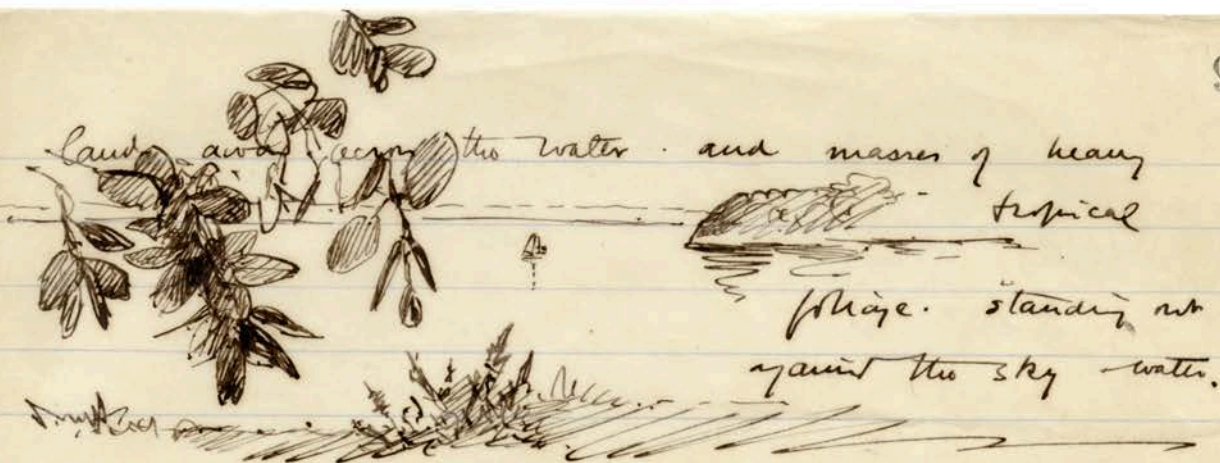 land away across the water. and masses of heavy
tropical
foliage. standing out
against the sky water.